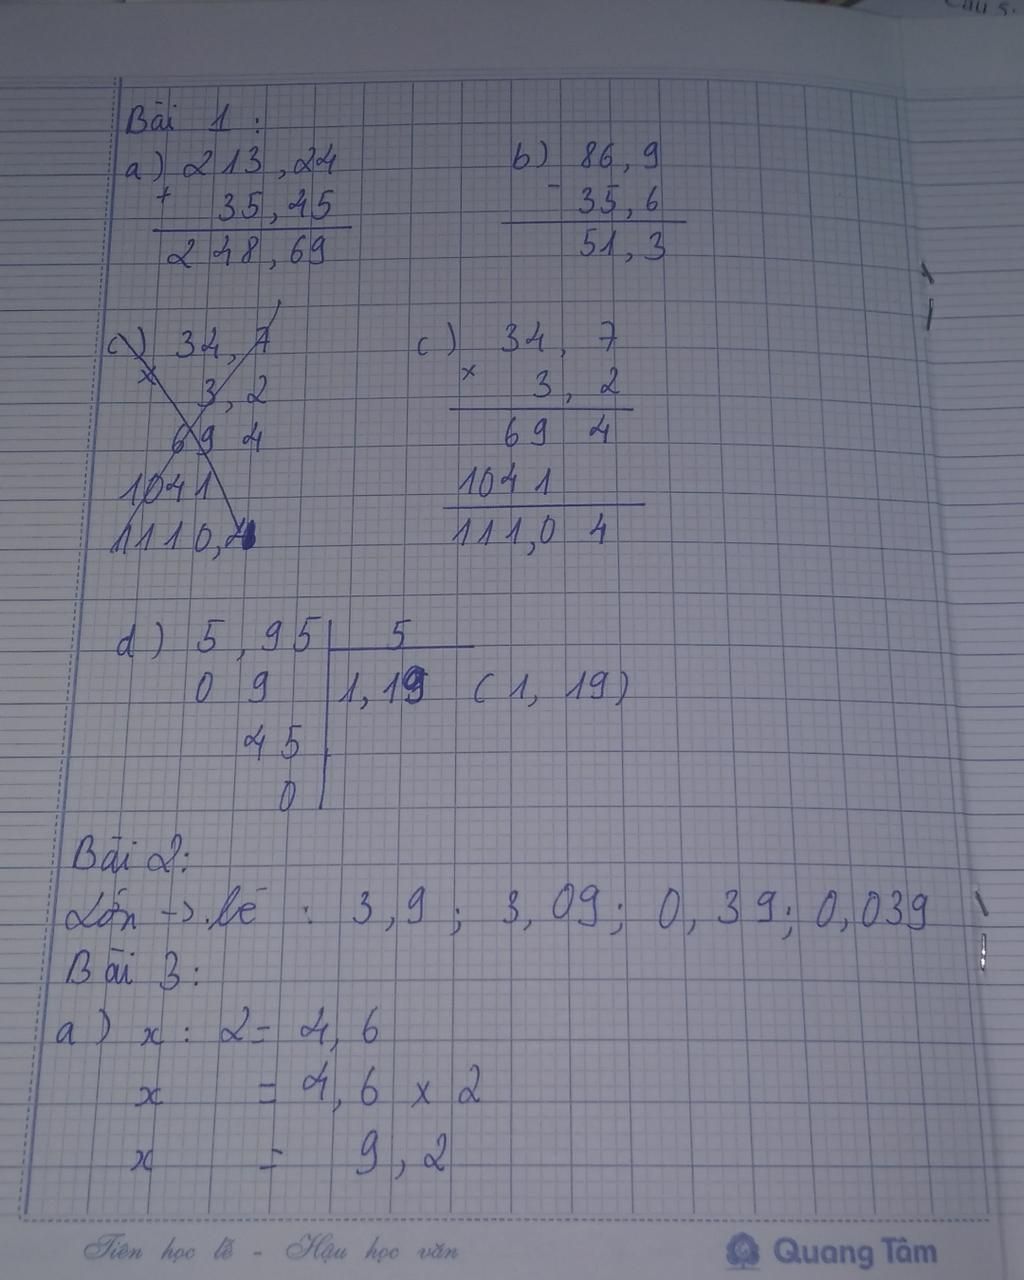 Câu 5:
Bài 1 :
a) 213,24 b) 86,9
+ 35,45 - 35,6
248,69 51,3
c) 34,7 c) 34,7
x 3,2 x 3,2
69 4 69 4
1041 1041
1110,4 111,0 4
d) 5,95 5
0 9 1,19 (1, 19)
45
0
Bài 2:
Lớn -> bé : 3,9; 3,09; 0,39; 0,039
Bài 3:
a) x : 2 = 4,6
x = 4,6 x 2
x = 9,2
Tiên học lễ - Hậu học văn Quang Tâm